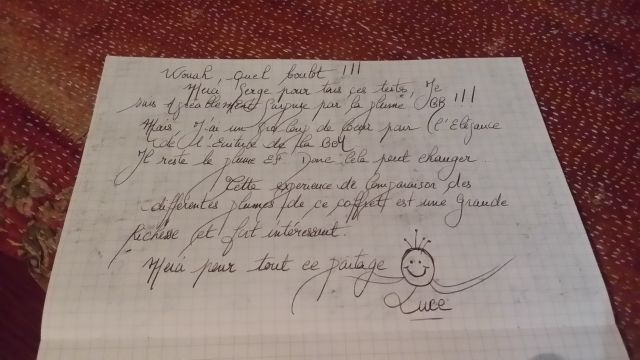 Wouah, quel boulot !!!
Merci Serge pour tous ces tests, Je
suis agréablement surprise par la plume BB !!!
Mais, J'ai un gros coup de coeur pour l'Elégance
de l'écriture de la
Il reste le plume EF Donc cela peut changer.
Cette experience de comparaison des
différentes plumes de ce coffret est une grande
richesse et fort intéressant.
Merci pour tout ce partage
Luce